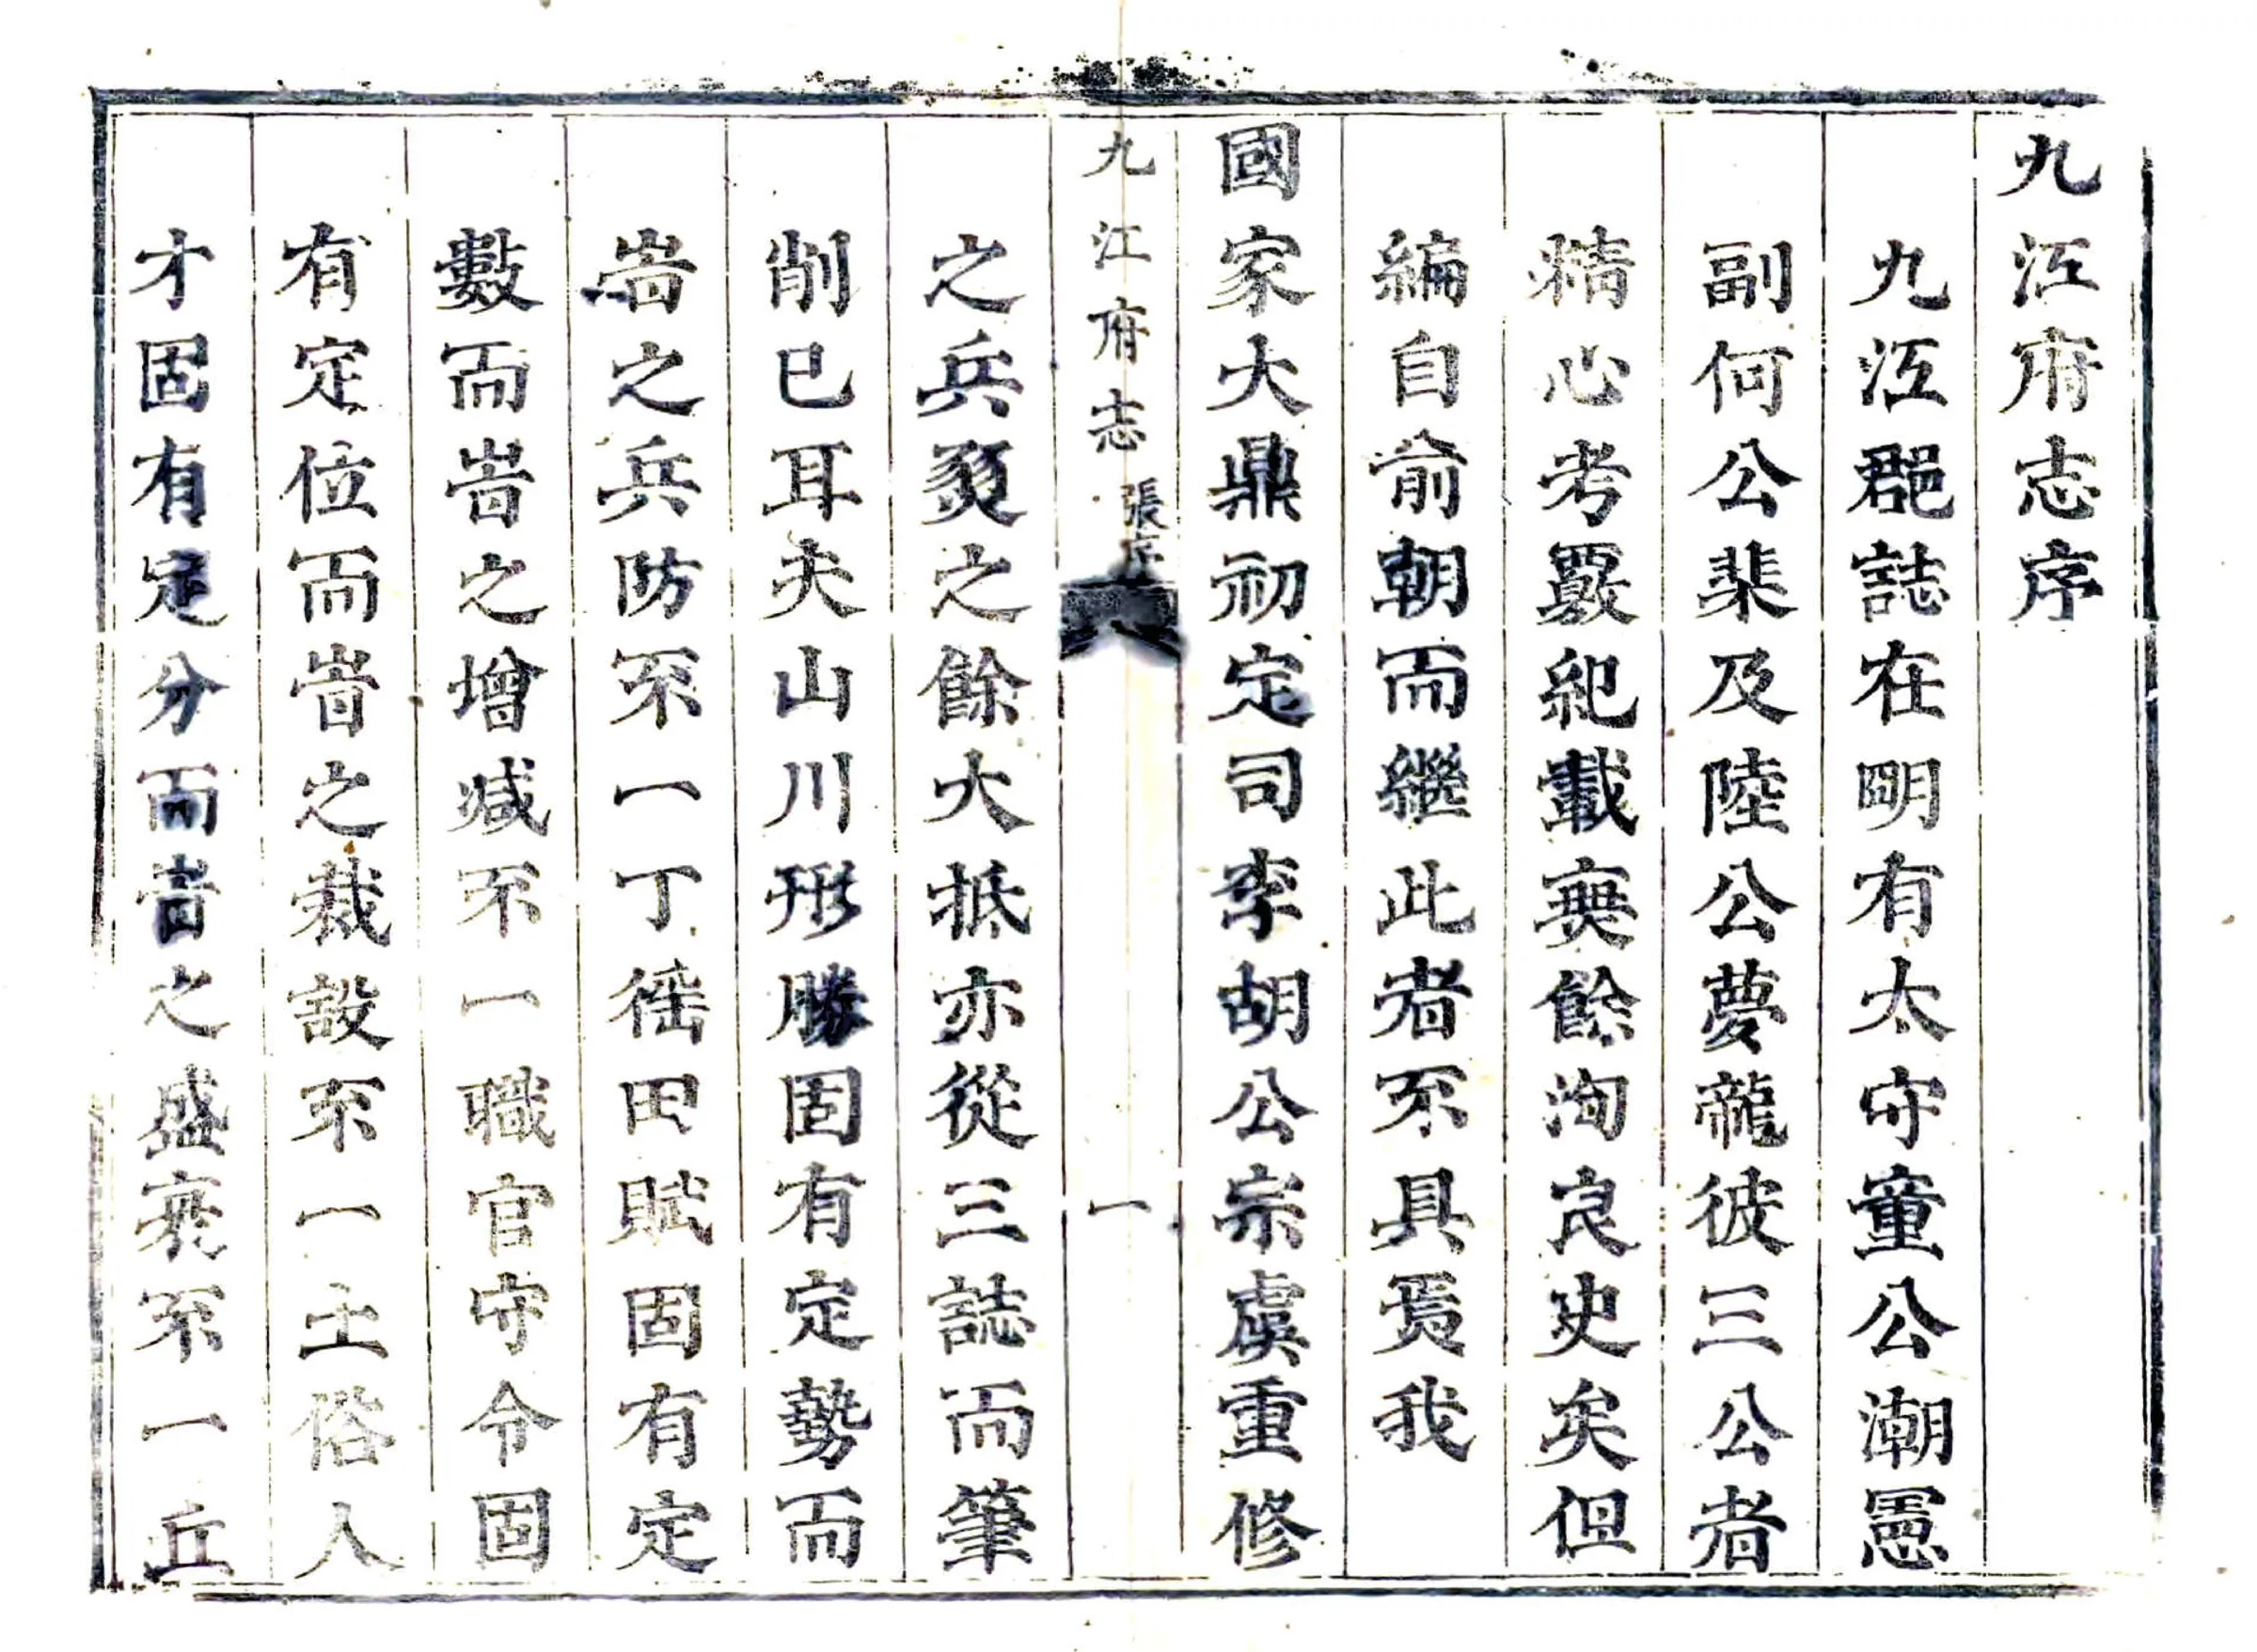 九江府志序
九江郡誌在明有太守童公潮憲
副何公棐及陸公夢龍彼三公者
精心考覈紀載無餘洵良史矣但
編自前朝而繼此者不具焉我
國家大鼎初定司李胡公宗虞重修
九江府志 張序 一
之兵燹之餘大抵亦從三誌而筆
削已耳夫山川形勝固有定勢而
旹之兵防不一丁徭田賦固有定
數而旹之增减不一職官守令固
有定位而旹之裁設不一土俗人
才固有定分而旹之盛衰不一丘